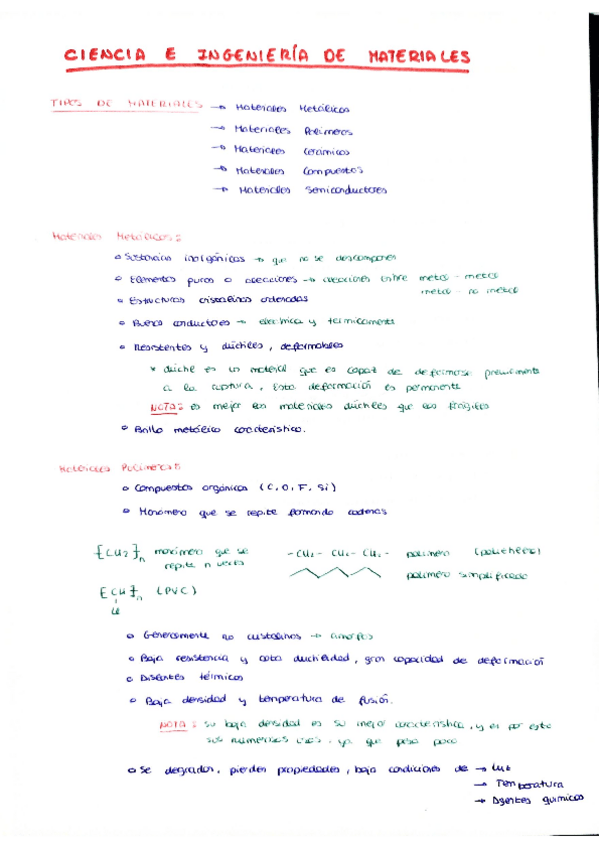 CIENCIA E INGENIERÍA DE MATERIALES
TIPOS DE MATERIALES → Materiales Metálicos
→ Materiales Polímeros
→ Materiales Cerámicos
→ Materiales Compuestos
→ Materiales Semiconductores
Materiales Metálicos:
Sustancias inorgánicas → que no se descomponen
Elementos puros o aleaciones → aleaciones entre metal - metal
metal - no metal
Estructuras cristalinas ordenadas
Buenos conductores → eléctrica y térmicamente
Resistentes y dúctiles, deformables
* dúctil es un material que es capaz de deformarse previamente
a la ruptura, esta deformación es permanente
NOTA: es mejor los materiales dúctiles que los frágiles
Brillo metálico característico.
Materiales Polímeros:
Compuestos orgánicos (C, O, F, Si)
Monómero que se repite formando cadenas
[CH2]n monómero que se
repite n veces
-CH2- CH2- CH2- polímero (polietileno)
polímero simplificado
[CH]n (PVC)
Cl
Generalmente no cristalinos → amorfos
Baja resistencia y alta ductilidad, gran capacidad de deformación
Aislantes térmicos
Baja densidad y temperatura de fusión.
NOTA: su baja densidad es su mejor característica, y es por este
sus numerosos usos, ya que pesa poco
Se degradan, pierden propiedades, bajo condiciones de → Luz
→ Temperatura
→ Agentes químicos